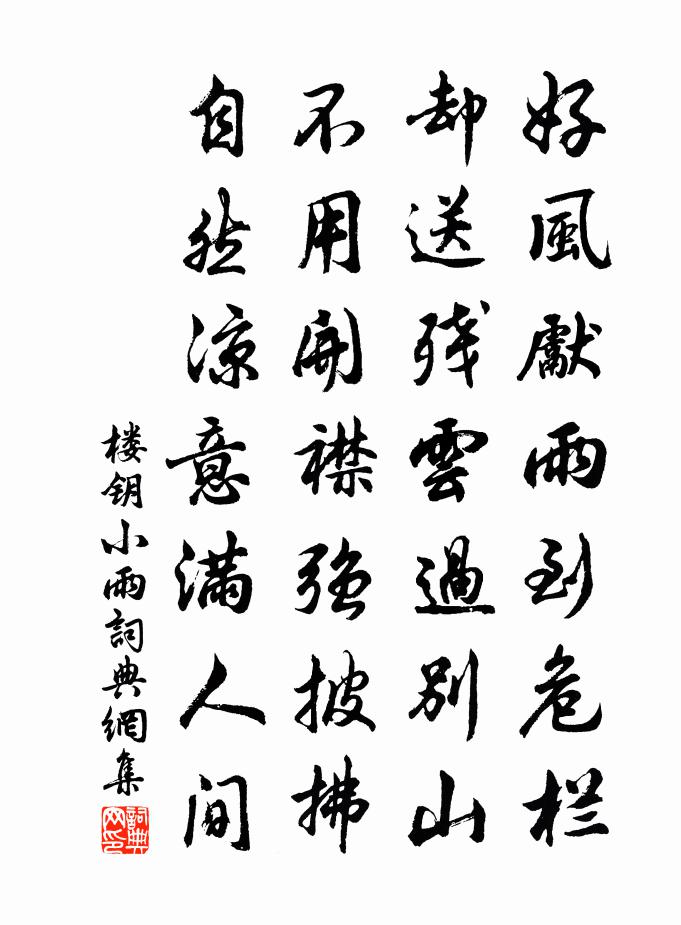 好風獻雨到危栏
却送残雲過别山
不用開襟強披拂
自然凉意满人间
楼钥小雨詞典網集
詞典网印